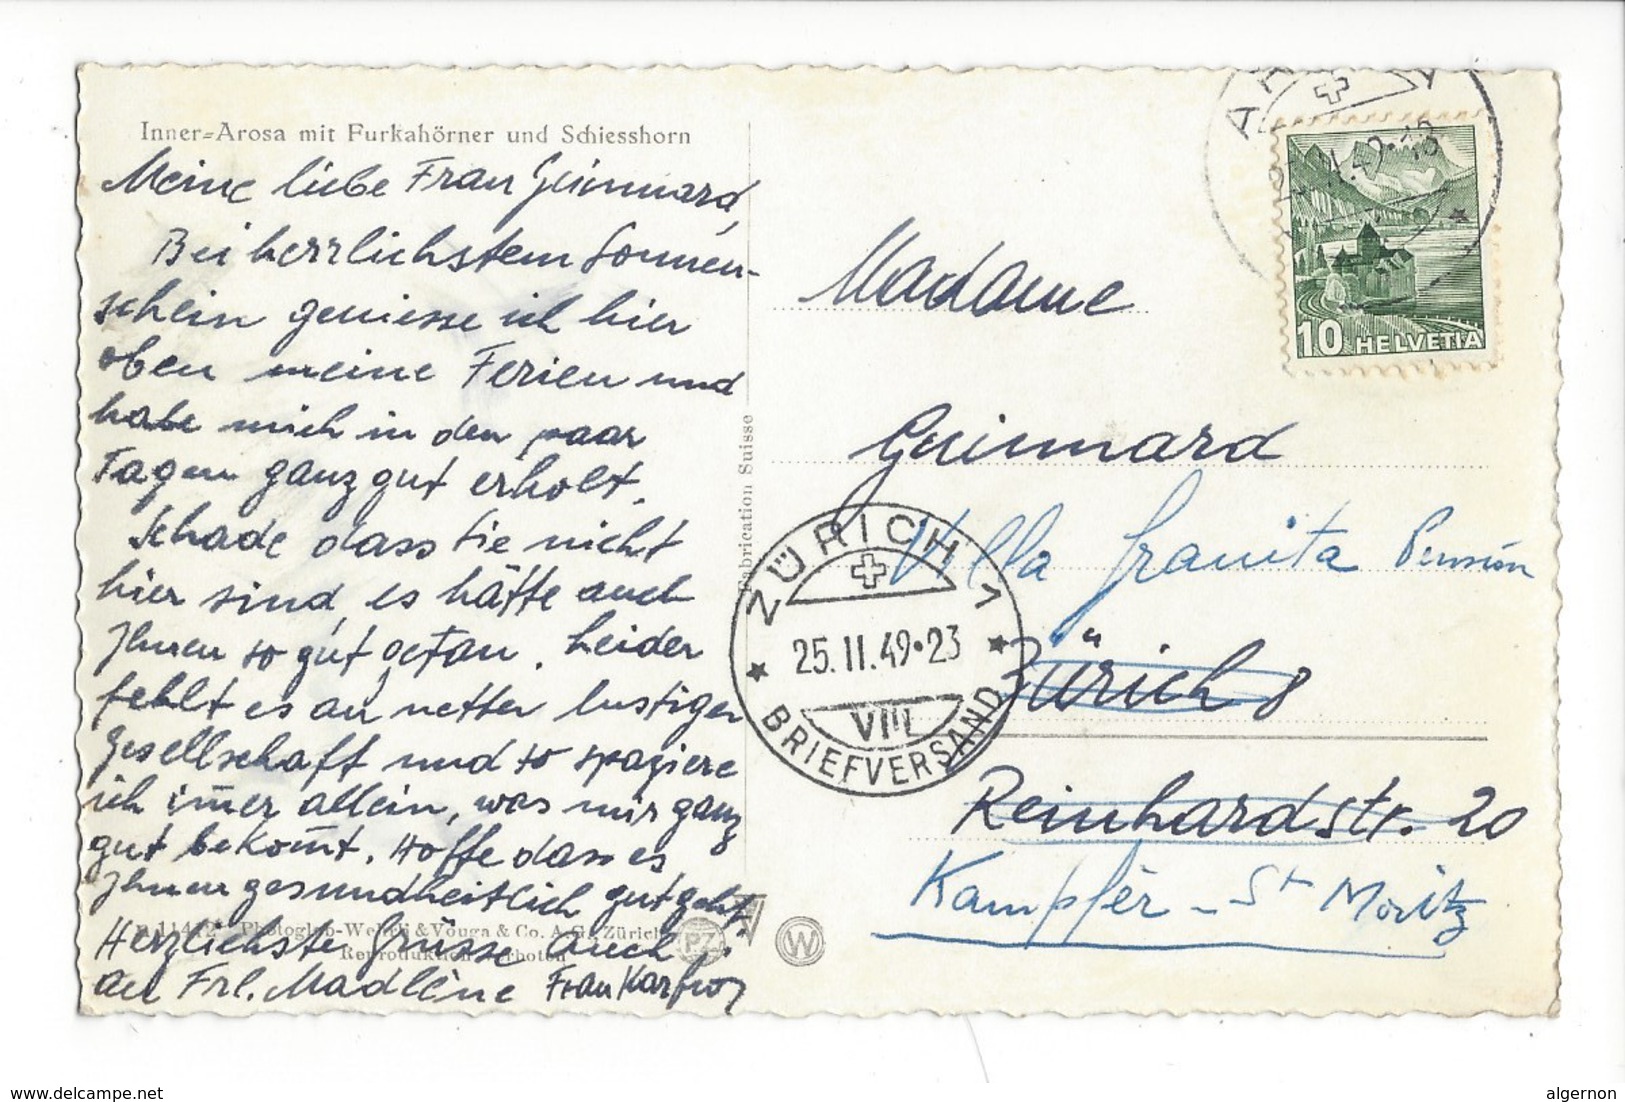 Inner-Arosa mit Furkahörner und Schiesshorn
Meine liebe Frau Guinnard,
Bei herrlichstem Sonnen-
schein geniesse ich hier
oben meine Ferien und
habe mich in den paar
Tagen ganz gut erholt.
Schade dass Sie nicht
hier sind, es hätte auch
Ihnen so gut getan. Leider
fehlt es an netter lustiger
Gesellschaft und so spaziere
ich im̅er allein, was mir ganz
gut bekom̅t. Hoffe dass es
Ihnen gesundheitlich gut geht.
Herzlichste Grüsse auch
an Frl. Madlène Frau
11412 Photoglob-Wehrli & Vouga & Co. A.G., Zürich
Reproduktion verboten
PZ
W
Fabrication Suisse
Madame
Guinnard
Villa Granita Pension
Zürich 8
Reinhardstr. 20
Kampfér - St Moritz
ZÜRICH 1
25.II.49·23
VIII
BRIEFVERSAND
AR
49·18
10 HELVETIA
www.delcampe.net
algernon